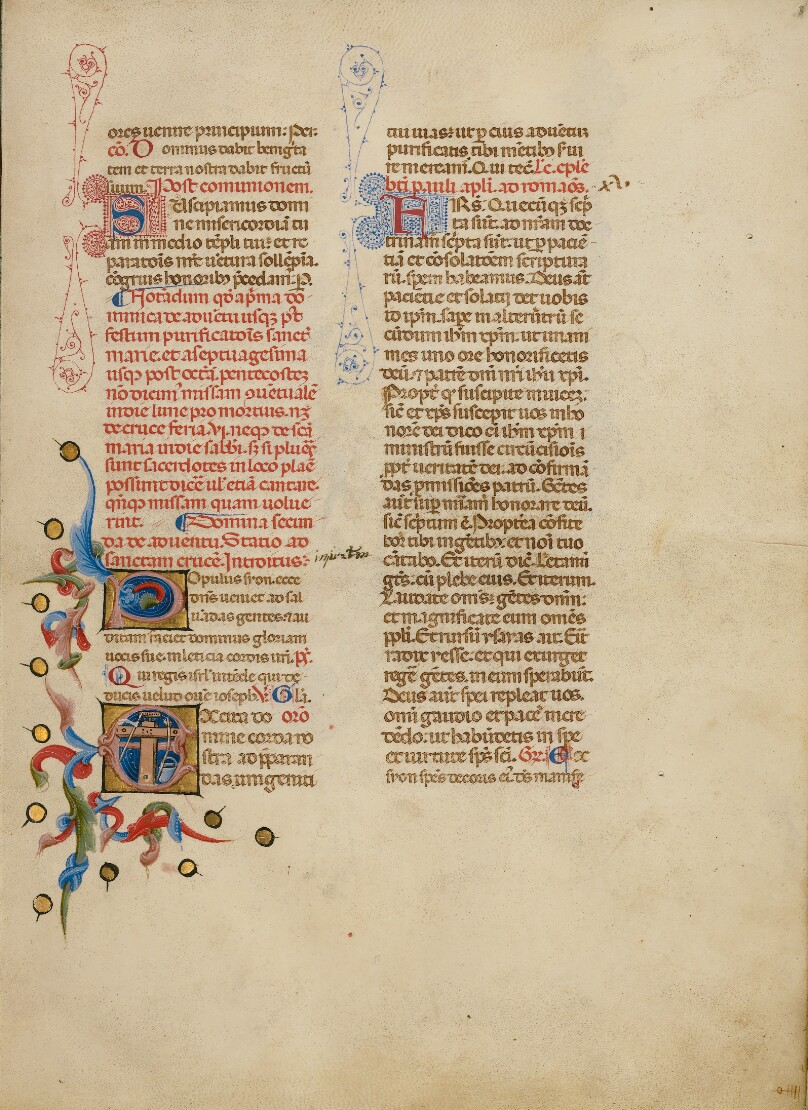 ores uenire principium: Per.
co. Dominus dabit benigta
tem et terra nostra dabit fructū
suum. Post comunionem.
Suscipiamus domi
ne misericordiā tu
am in medio tēpli tui: et re
paratois nrē uētura sollēpia.
cōgruis honoribȝ p̄cedam̄. P.
Notandum qđ a p̄ma do
minica de aduētu usqȝ post
festum purificatōis sancte
marie. et a septuagesima
usqȝ post octā. pentecostes
nō dicim̄ missam
in die lune pro mortuis. nȝ
de cruce feria VI. neqȝ de scā
maria in die sabbī. sȝ si plures
sunt sacerdotes in loco
possunt dicē uł etiā cantare.
missam quam uolue
rint. Domīnica secun
da de aduentu. Statio ad
sanctam crucē. Introitus:
Populus syon. ecce
dn̄s ueniet ad sal
uādas gentes. 7 au
ditam faciet dominus gloriam
uocis sue. in leticia cordis uri. ps.
Qui regis isrl intēde qui de
ducis uelud ouē ioseph. V. Glā.
Excita do orō
mine corda no
stra ad p̄paran
das unigeniti
tui uias: ut p eius aduētū
purificatis tibi mētibȝ s̄ui
re meream̄. Qui tecū. Lc. eple
btī pauli apłi. ad romāos. xv.
FRs. Quecūqȝ scp
ta sūt. ad nr̄am doc
trinam scpta sūt: ut p paciē
tiā et cōsolatōem scriptura
rū. spem habeamus. Deus aūt
paciētie et solatij det uobis
id ipm̄. sapē in alterutrū se
cūdum ihm̄ xpm̄. ut unani
mes uno ore honorificetis
deū. 7 patrē dn̄i nr̄i ihū xp̄i.
Propt qȝ suscipite inuicē.
sic̄ et xp̄s suscepit uos in ho
norē dei dico ei ihm̄ xpm̄
ministrū fuisse circūcisiōis
ppt ueritatē dei. ad cōfirmā
das pmissiōes patrū. Gētes
aūt sup mīam honorare deū.
sic̄ scptum ē. Proptea cōfite
bor tibi in gētibȝ. et noī tuo
cātabo. Et iterū dic̄. Letamī
gtēs. cū plebe eius. Et iterum.
Laudate oms gētes dnm̄.
et magnificate eum omēs
ppłi. Et rursū ysayas ait. Erit
radix yesse. et qui exurget
regē gētes. in eum sperabūt.
Deus aūt spei repleat uos.
omī gaudio et pacē in cre
dēdo. ut habūdetis in spe
et uirtute sp̄s scī. Gr. Ex
syon spēs decoris ei. ds manife